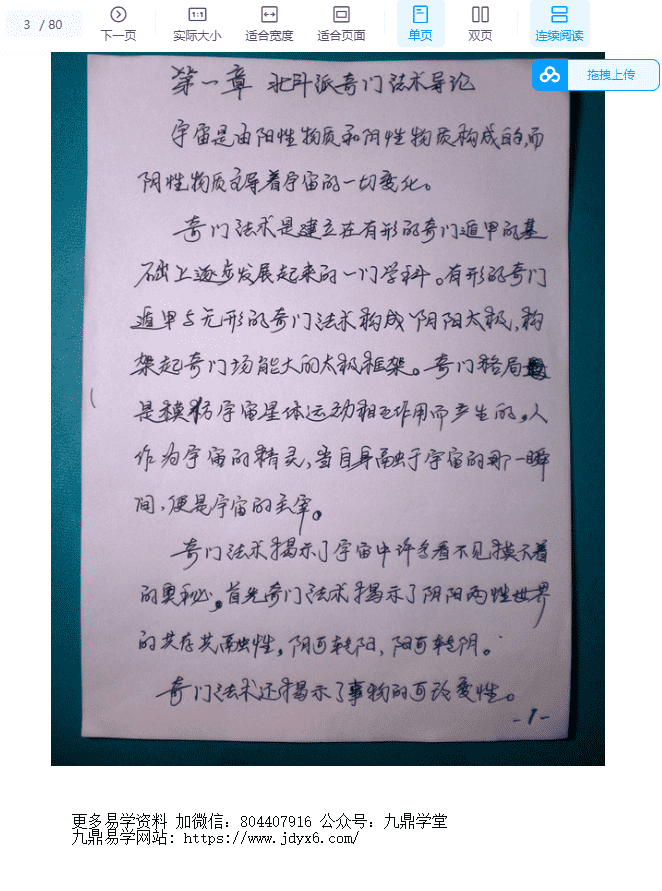 3 / 80
下一页
实际大小
适合宽度
适合页面
单页
双页
连续阅读
拖拽上传
第一章 北斗派奇门法术导论
宇宙是由阳性物质和阴性物质构成的,而
阴性物质主导着宇宙的一切变化。
奇门法术是建立在有形的奇门遁甲的基
础上逐步发展起来的一门学科。有形的奇门
遁甲与无形的奇门法术构成阴阳太极,构
架起奇门场能大的太极框架。奇门格局
是模仿宇宙星体运动相互作用而产生的,人
作为宇宙的精灵,当自身融于宇宙的那一瞬
间,便是宇宙的主宰。
奇门法术揭示了宇宙中许多看不见摸不着
的奥秘。首先奇门法术揭示了阴阳两性世界
的共存共融性,阴可转阳,阳可转阴。
奇门法术还揭示了事物的可改变性。
-1-
更多易学资料 加微信: 804407916 公众号: 九鼎学堂
九鼎易学网站: https://www.jdyx6.com/